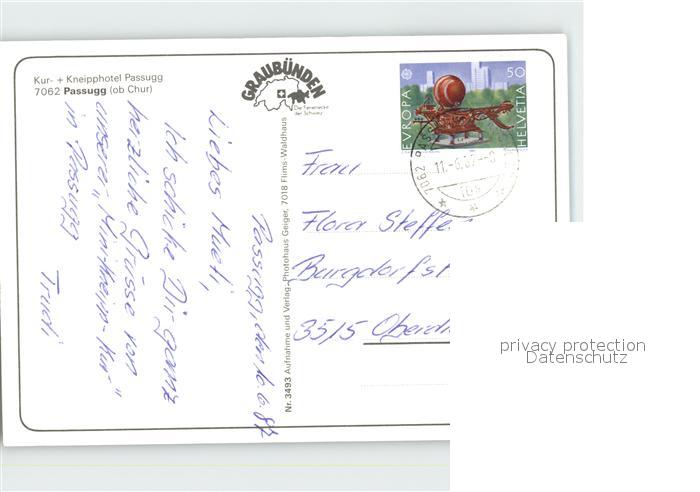 Kur- + Kneipphotel Passugg
7062 Passugg (ob Chur)
GRAUBÜNDEN
Die Ferienecke
der Schweiz
EUROPA
50
HELVETIA
7062 PASS
11.-6.87.-8
Passugg, den 10.6.87
Liebes Mueti,
Ich schicke Dir ganz
herzliche Grüsse von
unserer „Mini-Kneipp-Kur-"
in Passugg
Trudi
Nr. 3493 Aufnahme und Verlag: Photohaus Geiger, 7018 Flims-Waldhaus
Frau
Flora Steffe
Burgdorfst
3515 Oberdi
privacy protection
Datenschutz